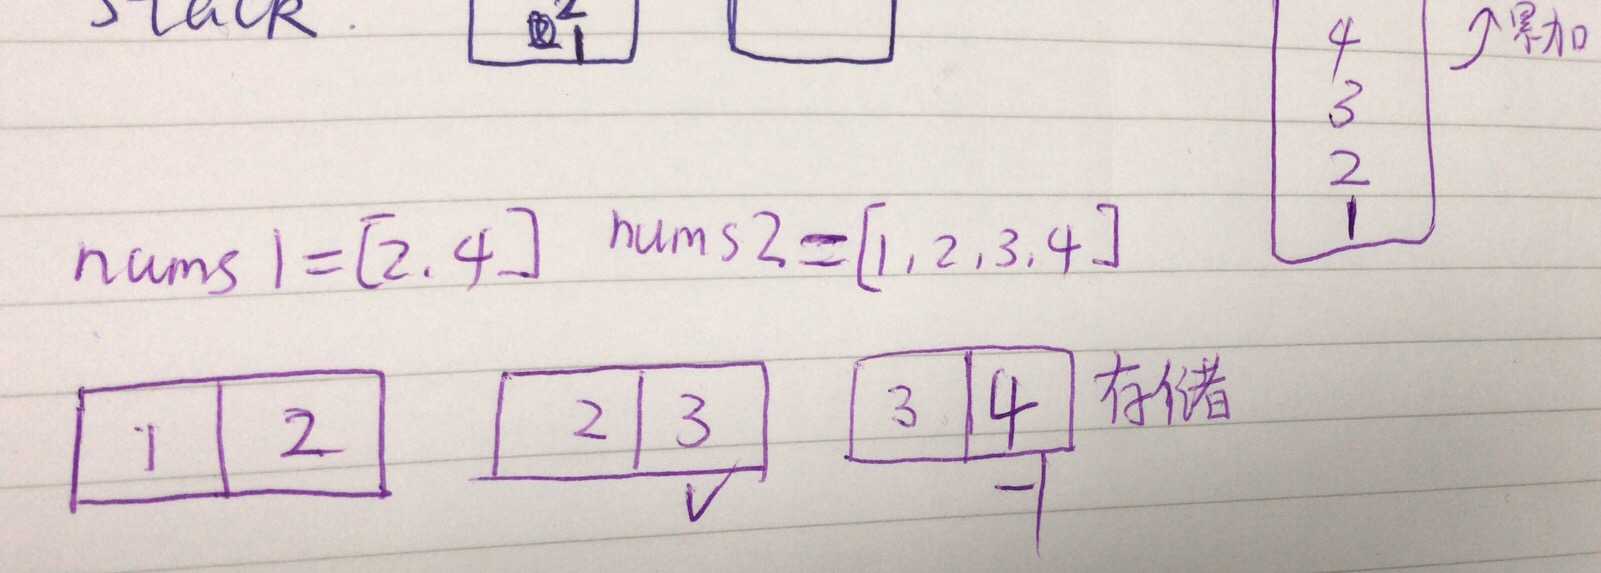 stack.
2
1
4 累加
3
2
1
nums1=[2.4] nums2=[1,2,3.4]
1 2 2 3 3 4 存储
✓ -1